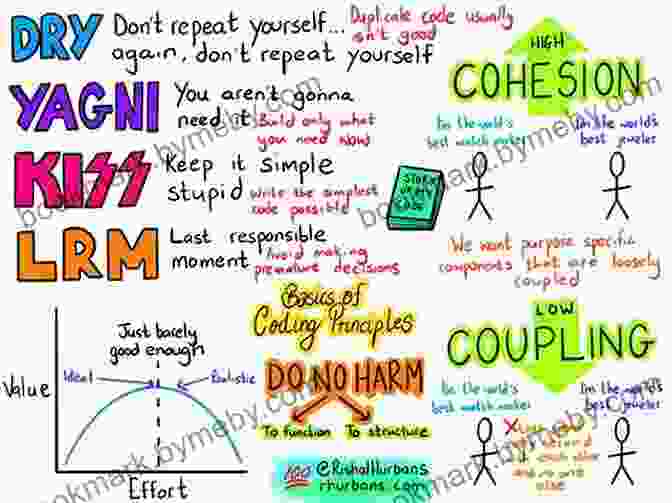 DRY
Don't repeat yourself...
again, don't repeat yourself
Duplicate code usually
isn't good
YAGNI
You aren't gonna
need it
Build only what
you need now
KISS
Keep it simple
stupid
Write the simplest
code possible
LRM
Last responsible
moment
Avoid making
premature decisions
HIGH
COHESION
I'm the world's
best watch maker
I'm the world's
best jeweler
We want purpose specific
components that are loosely
coupled
Just barely
good enough
Value
Ideal
Realistic
Effort
Basics of
Coding Principles
DO NO HARM
To function
To structure
100
@RishalHurbans
rhurbans.com
LOW
COUPLING
I'm the world's
best watch maker
I'm the world's
best jeweler
each other
and no one
else
bookmark.bymeby.com
bookmark.bymeby.com
bookmark.bymeby.com
bookmark.bymeby.com